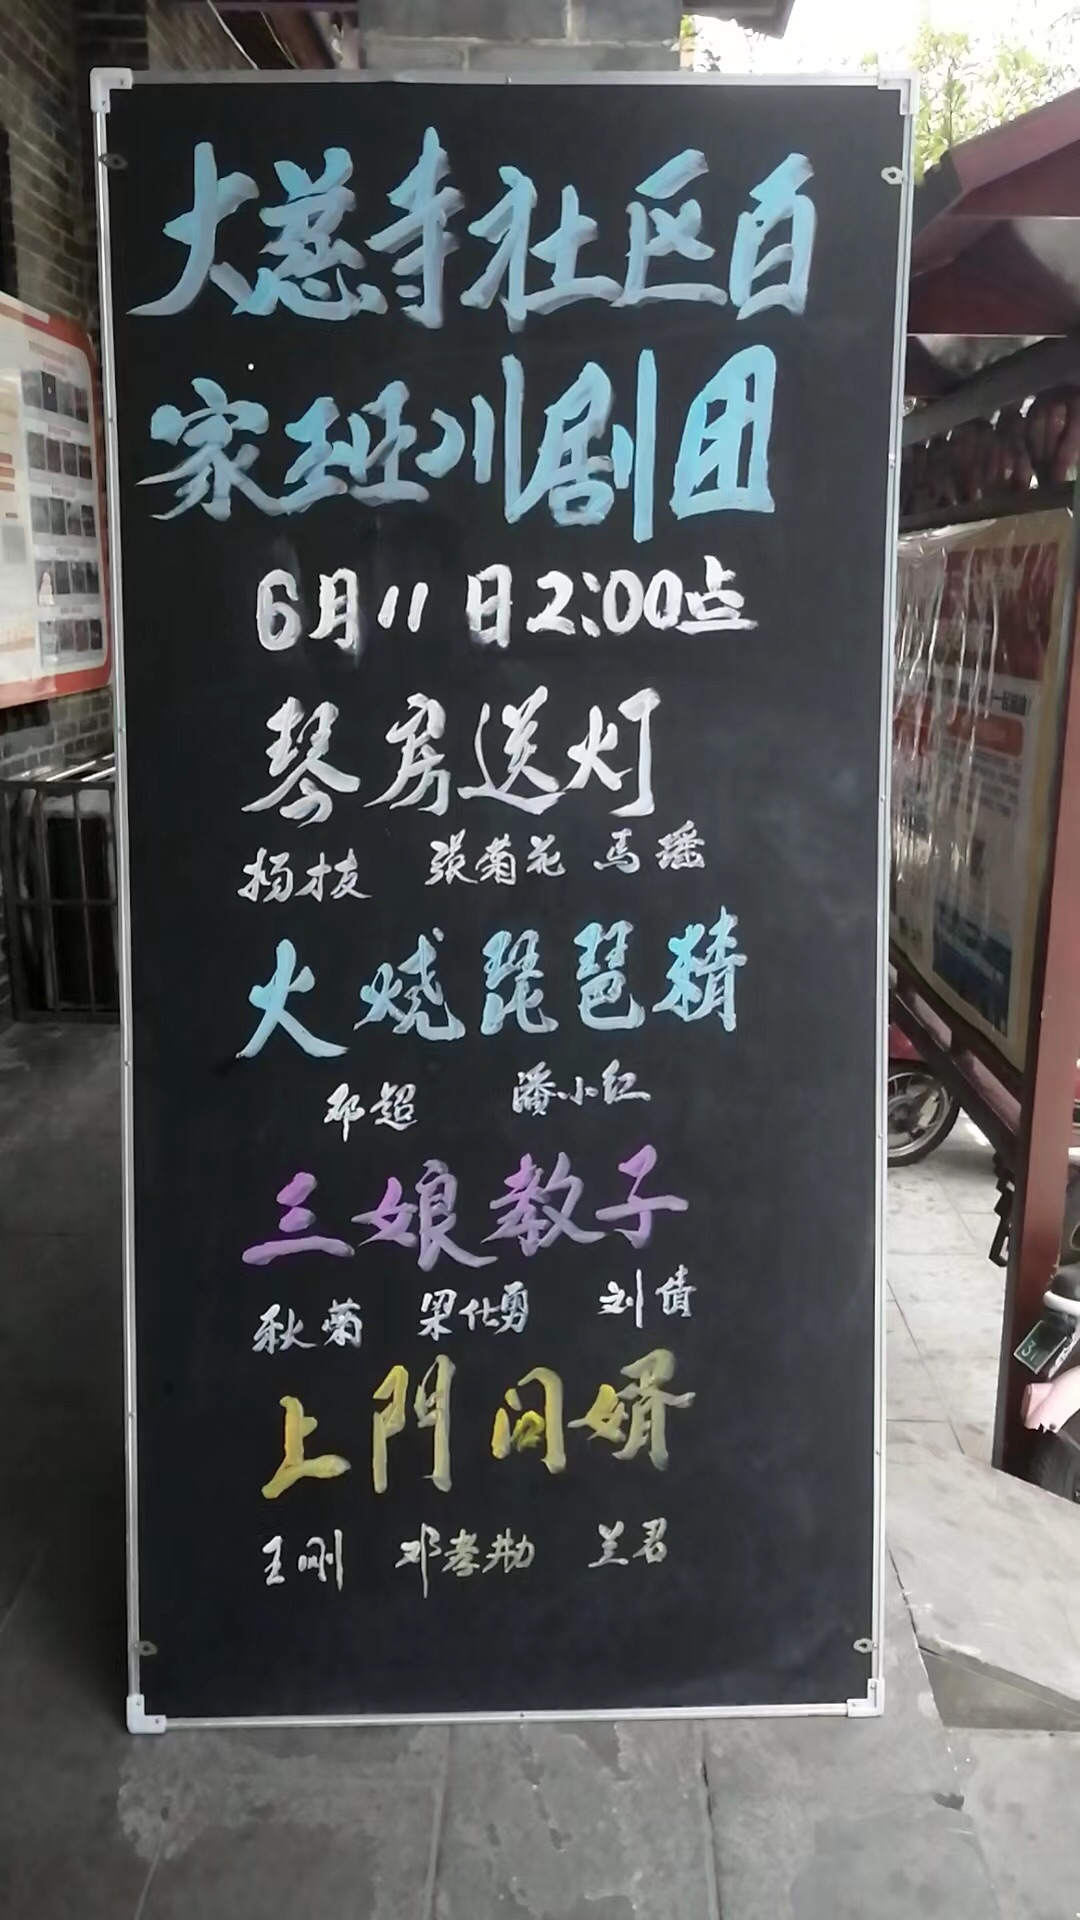 大慈寺社区百
家班川剧团
6月11日2:00点
琴房送灯
杨枝 張菊花 馬瑶
火烧琵琶精
邓超 潘小红
三娘教子
秋菊 梁仕勇 刘倩
上門问婿
王刚 邓孝勋 兰君